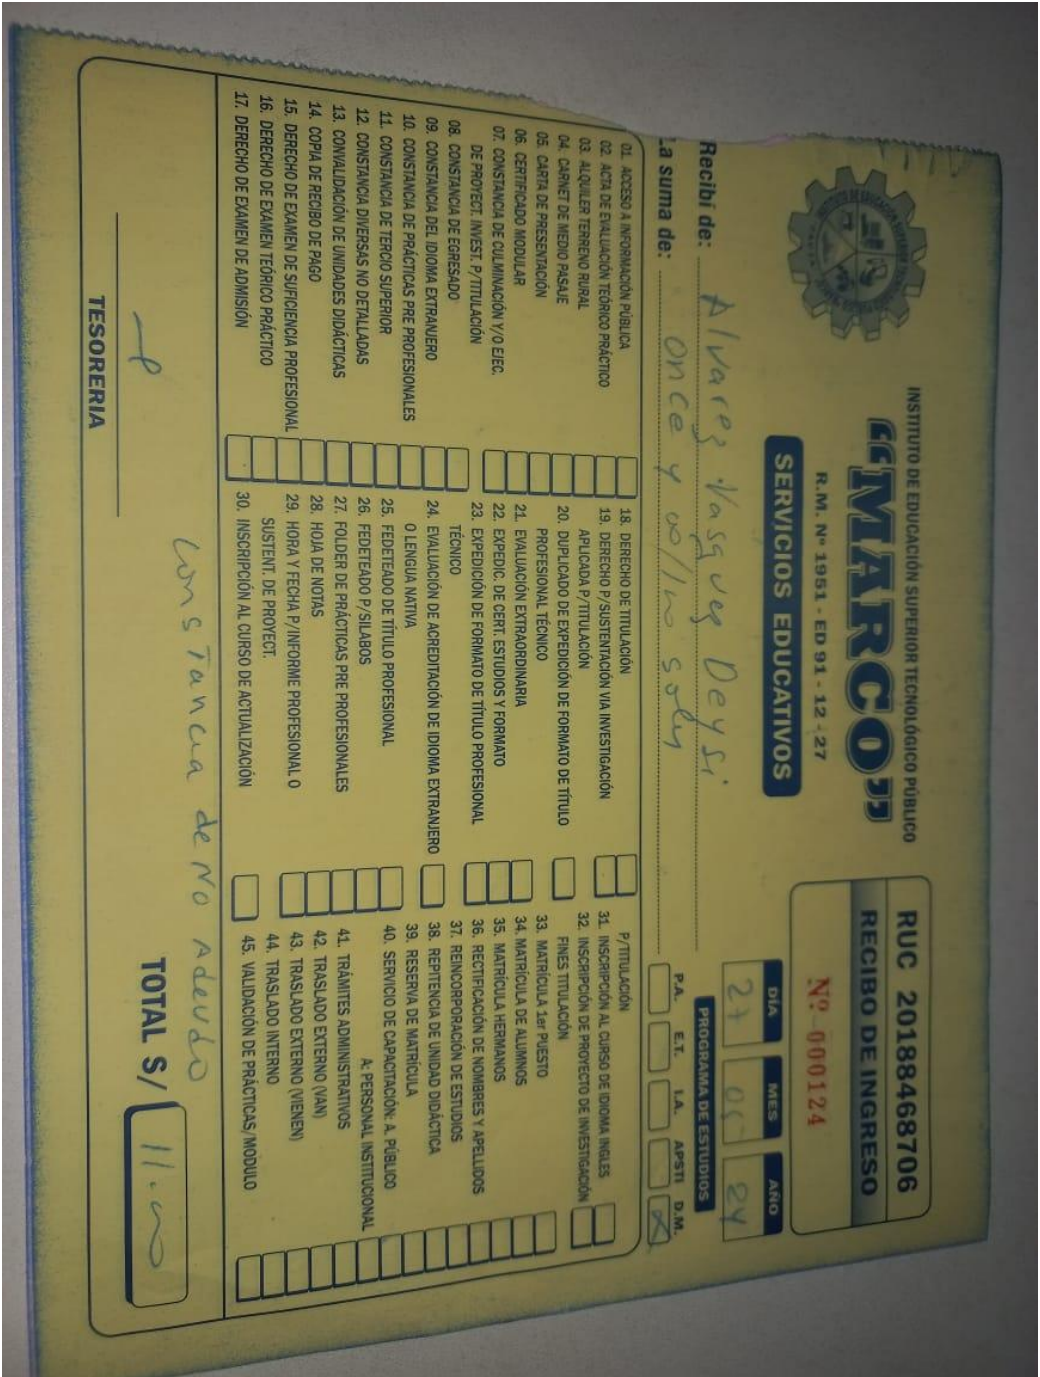 INSTITUTO DE EDUCACIÓN SUPERIOR TECNOLÓGICO PÚBLICO
“MARCO”
R.M. Nº 1951 - ED 91 - 12 - 27
SERVICIOS EDUCATIVOS
RUC 20188468706
RECIBO DE INGRESO
Nº 000124
DÍA MES AÑO
27 05 24
PROGRAMA DE ESTUDIOS
P.A. E.T. I.A. APSTI D.M.
X
Recibí de: Alvarez Vasquez Deysi
La suma de: once y 00/100 soles
01. ACCESO A INFORMACIÓN PÚBLICA
02. ACTA DE EVALUACIÓN TEÓRICO PRÁCTICO
03. ALQUILER TERRENO RURAL
04. CARNET DE MEDIO PASAJE
05. CARTA DE PRESENTACIÓN
06. CERTIFICADO MODULAR
07. CONSTANCIA DE CULMINACIÓN Y/O EJEC.
DE PROYECT. INVEST. P/TITULACIÓN
08. CONSTANCIA DE EGRESADO
09. CONSTANCIA DEL IDIOMA EXTRANJERO
10. CONSTANCIA DE PRÁCTICAS PRE PROFESIONALES
11. CONSTANCIA DE TERCIO SUPERIOR
12. CONSTANCIA DIVERSAS NO DETALLADAS
13. CONVALIDACIÓN DE UNIDADES DIDÁCTICAS
14. COPIA DE RECIBO DE PAGO
15. DERECHO DE EXAMEN DE SUFICIENCIA PROFESIONAL
16. DERECHO DE EXAMEN TEÓRICO PRÁCTICO
17. DERECHO DE EXAMEN DE ADMISIÓN
18. DERECHO DE TITULACIÓN
19. DERECHO P/SUSTENTACIÓN VIA INVESTIGACIÓN
APLICADA P/TITULACIÓN
20. DUPLICADO DE EXPEDICIÓN DE FORMATO DE TÍTULO
PROFESIONAL TÉCNICO
21. EVALUACIÓN EXTRAORDINARIA
22. EXPEDIC. DE CERT. ESTUDIOS Y FORMATO
23. EXPEDICIÓN DE FORMATO DE TÍTULO PROFESIONAL
TÉCNICO
24. EVALUACIÓN DE ACREDITACIÓN DE IDIOMA EXTRANJERO
O LENGUA NATIVA
25. FEDETEADO DE TÍTULO PROFESIONAL
26. FEDETEADO P/SILABOS
27. FOLDER DE PRÁCTICAS PRE PROFESIONALES
28. HOJA DE NOTAS
29. HORA Y FECHA P/INFORME PROFESIONAL O
SUSTENT. DE PROYECT.
30. INSCRIPCIÓN AL CURSO DE ACTUALIZACIÓN
P/TITULACIÓN
31. INSCRIPCIÓN AL CURSO DE IDIOMA INGLES
32. INSCRIPCIÓN DE PROYECTO DE INVESTIGACIÓN
FINES TITULACIÓN
33. MATRÍCULA 1er PUESTO
34. MATRÍCULA DE ALUMNOS
35. MATRÍCULA HERMANOS
36. RECTIFICACIÓN DE NOMBRES Y APELLIDOS
37. REINCORPORACIÓN DE ESTUDIOS
38. REPITENCIA DE UNIDAD DIDÁCTICA
39. RESERVA DE MATRÍCULA
40. SERVICIO DE CAPACITACIÓN: A. PÚBLICO
A: PERSONAL INSTITUCIONAL
41. TRÁMITES ADMINISTRATIVOS
42. TRASLADO EXTERNO (VAN)
43. TRASLADO EXTERNO (VIENEN)
44. TRASLADO INTERNO
45. VALIDACIÓN DE PRÁCTICAS/MODULO
Constancia de No Adeudo
TESORERIA
TOTAL S/ 11.00